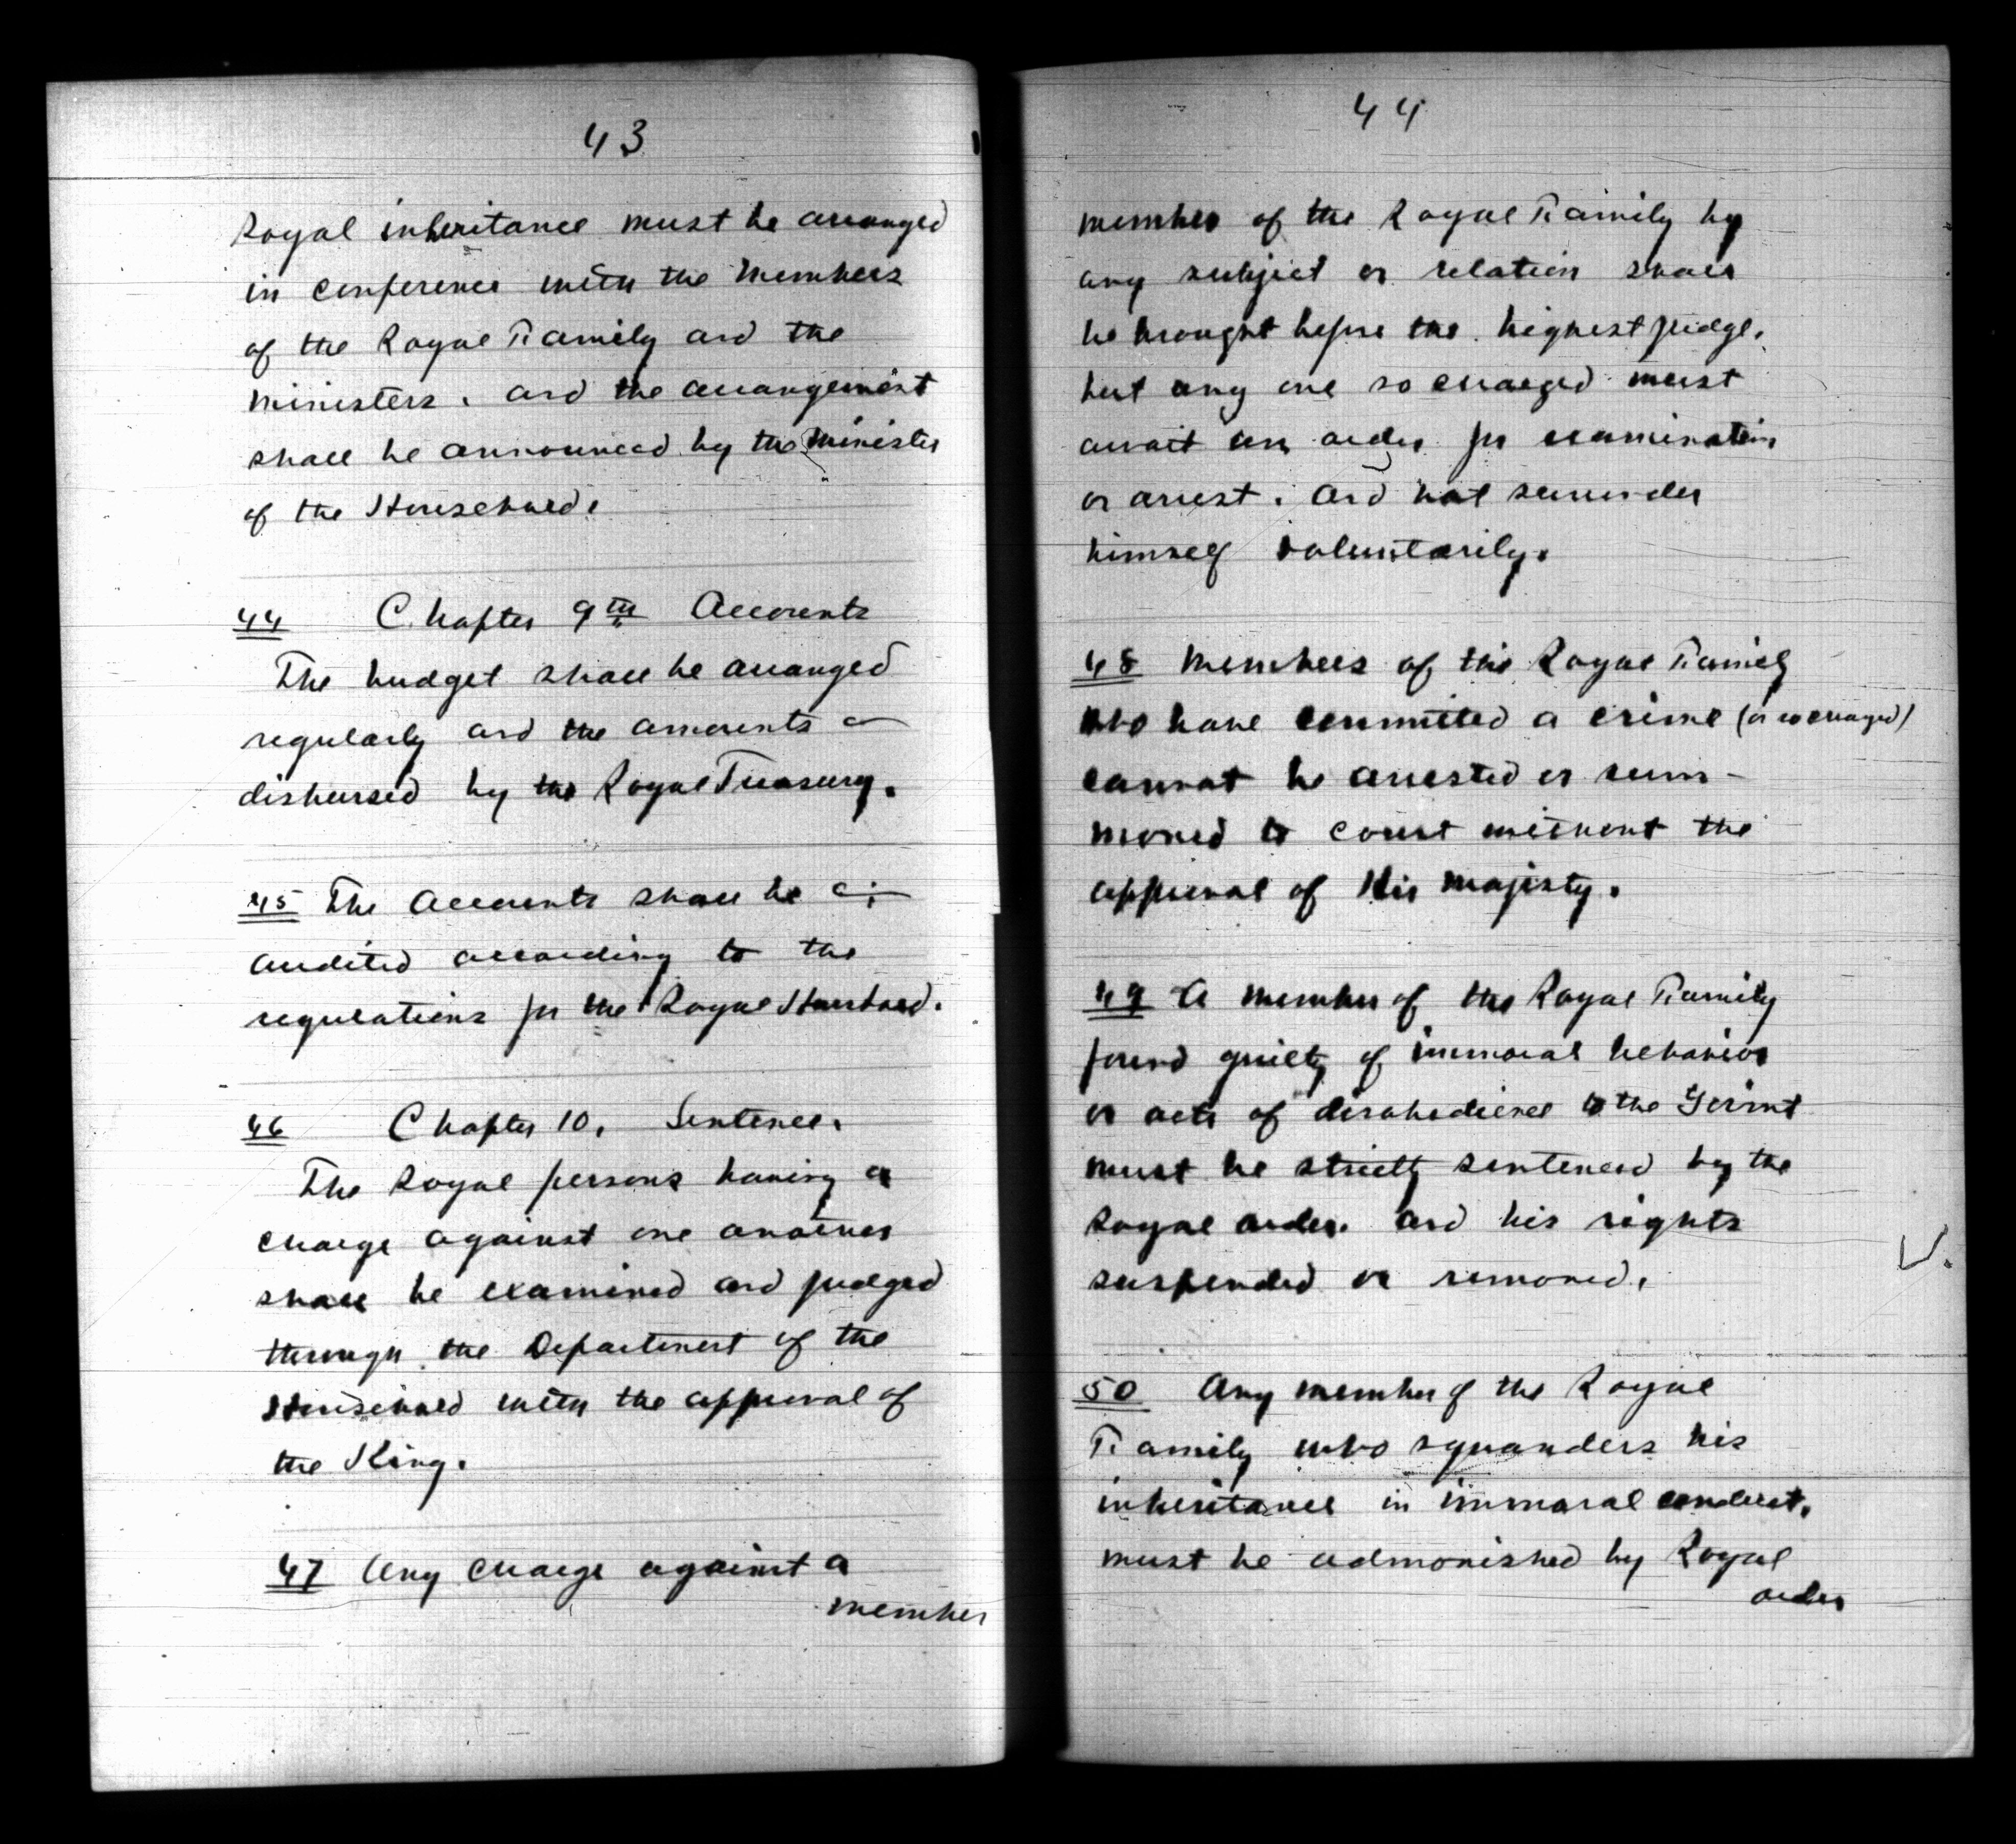 43
Royal inheritance must be arranged
in conference with the Members
of the Royal Family and the
Ministers. and the arrangement
shall be announced by the Minister
of the Household.
44 Chapter 9th Accounts
The budget shall be arranged
regularly and the amounts
disbursed by the Royal Treasury.
45 The Accounts shall be
audited according to the
regulations for the Royal Household.
46 Chapter 10. Sentence.
The Royal persons having a
charge against one another
shall be examined and judged
through the Department of the
Household with the approval of
the King.
47 Any charge against a
member
44
member of the Royal Family by
any subject or relation shall
be brought before the highest judge.
but any one so charged must
await an order for examination
or arrest. and not surrender
himself voluntarily.
48 Members of the Royal Family
who have committed a crime (or so charged)
cannot be arrested or sum-
moned to court without the
approval of His Majesty.
49 A member of the Royal Family
found guilty of immoral behavior
or acts of disobedience to the Govmt
must be strictly sentenced by the
Royal order. and his rights
suspended or removed.
50 Any member of the Royal
Family who squanders his
inheritance in immoral conduct.
must be admonished by Royal
order